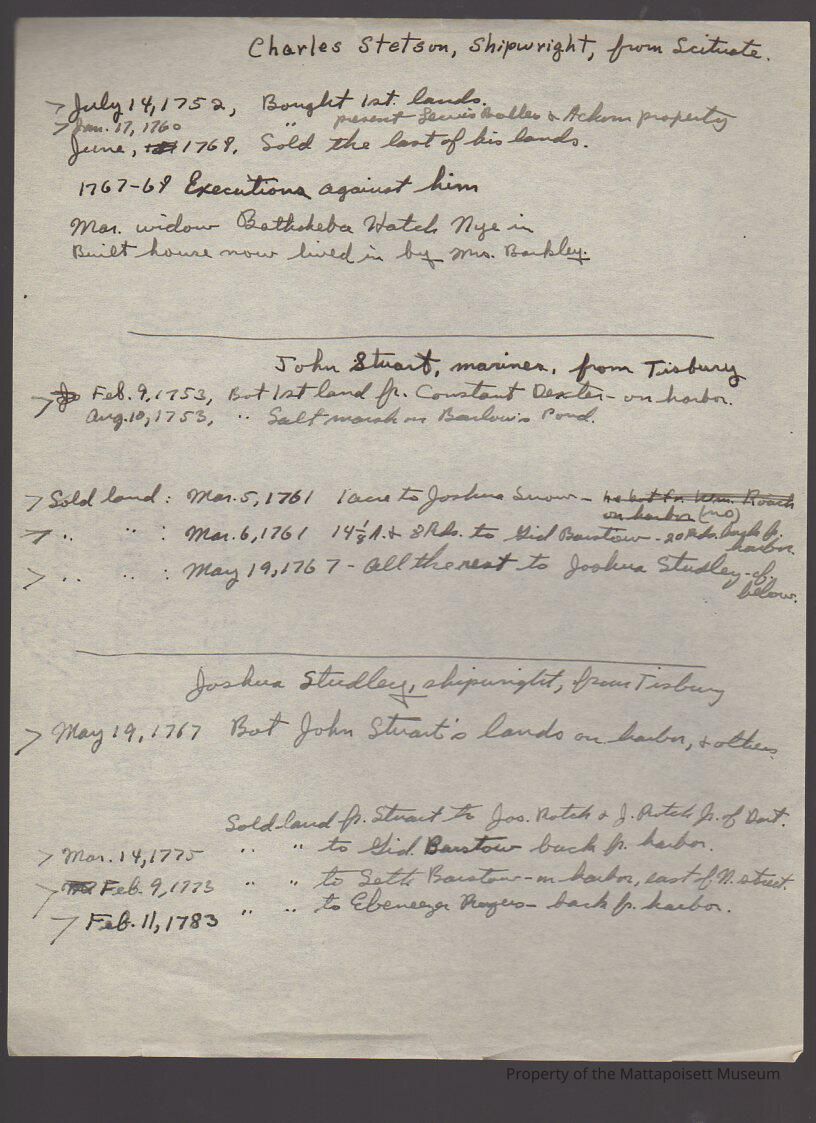 Charles Stetson, Shipwright, from Scituate.
> July 14, 1752, Bought 1st. lands.
> Jan. 17, 1760 " present Lewis & Ackom property
June, 1768. Sold the last of his lands.
1767-68 Executions against him
Mar. widow Bathsheba Hatch Nye in
Built house now lived in by Mrs. Barkley.
John Stuart, mariner, from Tisbury
> Feb. 9, 1753, Bot 1st land fr. Constant Dexter - on harbor.
Aug. 10, 1753, " Salt marsh on Barlow's Pond.
> Sold land : Mar. 5, 1761 1 acre to Joshua Snow - he bot fr. Wm. Roach
on harbor (no)
> " " : Mar. 6, 1761 14 1/8 A. & 8 Rds. to Gid Barstow - 20 Rds. back fr.
harbor.
> " " : May 19, 1767 - all the rest to Joshua Studley - cf.
below.
Joshua Studley, shipwright, from Tisbury
> May 19, 1767 Bot John Stuart's lands on harbor, & others
Sold land fr. Stuart to Jos. Rotch & J. Rotch Jr. of Dart.
> Mar. 14, 1775 " " to Gid. Barstow back fr. harbor.
> Feb. 9, 1773 " " to Seth Barstow - on harbor, east of N. street.
> Feb. 11, 1783 " " to Ebeneezer Rogers - back fr. harbor.
Property of the Mattapoisett Museum